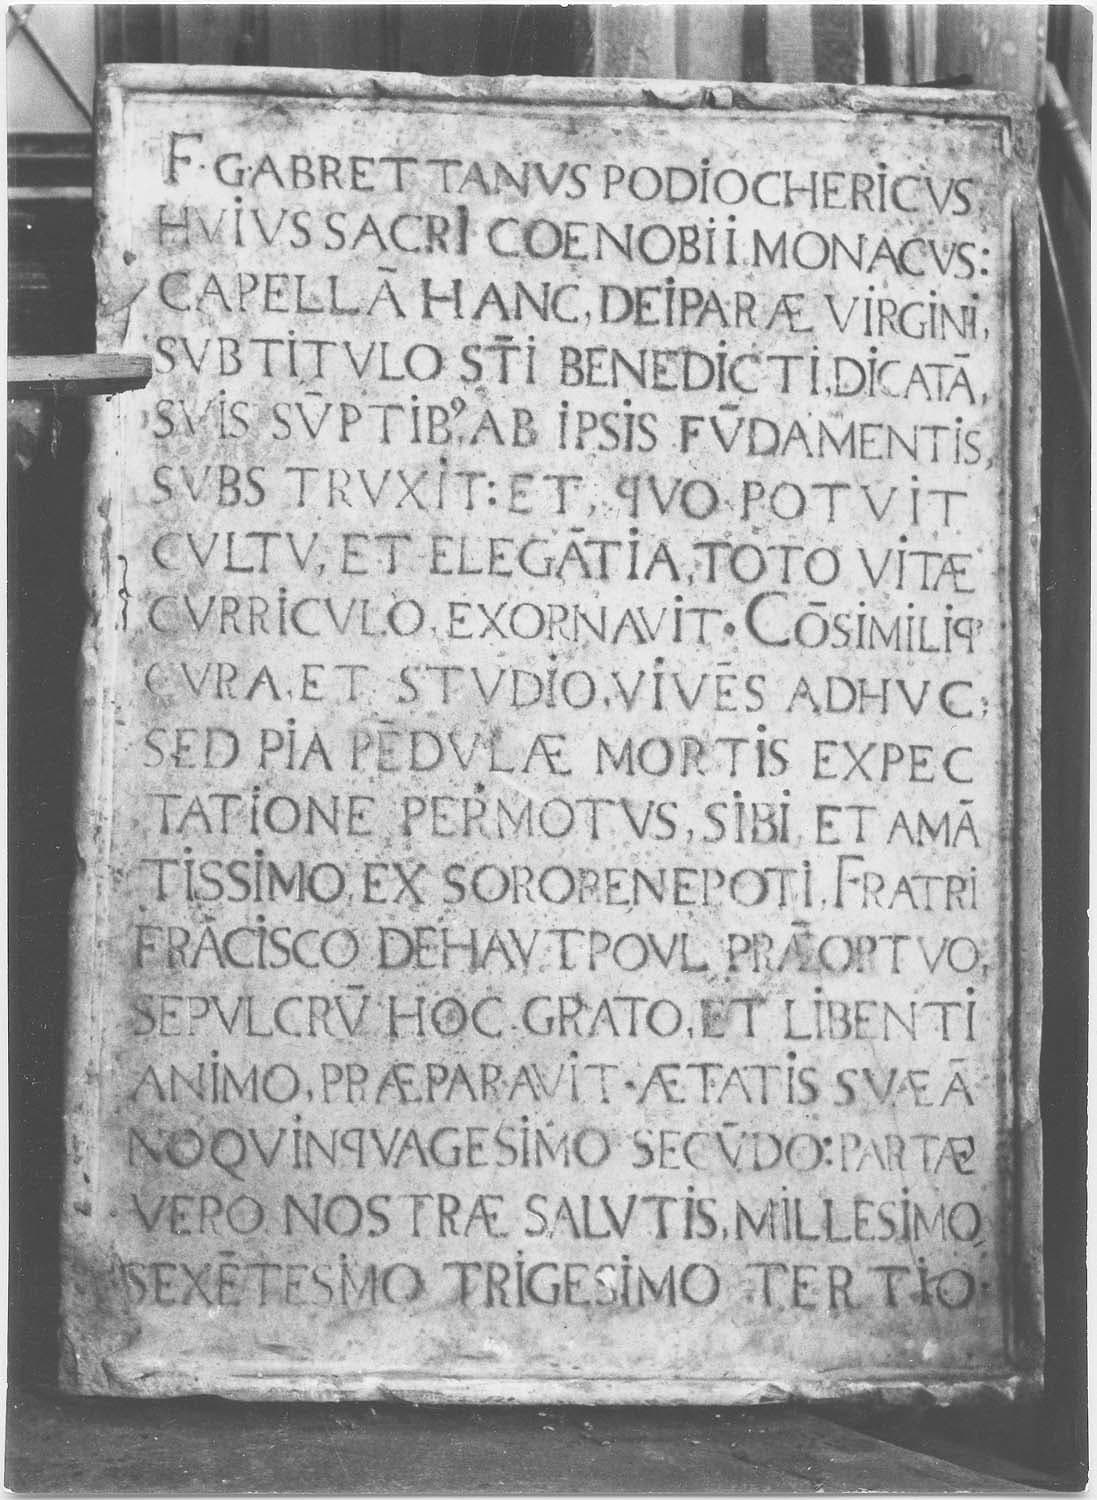 F·G·ABRETTANVS PODIOCHERICVS
HVIVS SACRI COENOBII MONACVS:
CAPELLĀ HANC, DEIPARÆ VIRGINI,
SVBTITVLO ST̄I BENEDICTI, DICATĀ,
SVIS SV̄PTIBꝰ, AB IPSIS FV̄DAMENTIS,
SVBSTRVXIT: ET, qVO POTVIT
CVLTV, ET ELEGĀTIA, TOTO VITÆ
CVRRICVLO, EXORNAVIT. CŌSIMILIqꝫ
CVRA, ET STVDIO, VIVĒS ADHVC;
SED PIA PĒDVLÆ MORTIS EXPEC
TATIONE PERMOTVS, SIBI, ET AMĀ
TISSIMO, EX SORORENEPOTI, FRATRI
FRĀCISCO DEHAVTPOVL PRÆOPTVO,
SEPVLCRV̄ HOC GRATO, ET LIBENTI
ANIMO, PRÆPARAVIT. ÆTATIS SVÆ Ā
NOQVINqVAGESIMO SECV̄DO: PARTÆ
VERO NOSTRÆ SALVTIS, MILLESIMO
SEXĒTESIMO TRIGESIMO TERTIO.